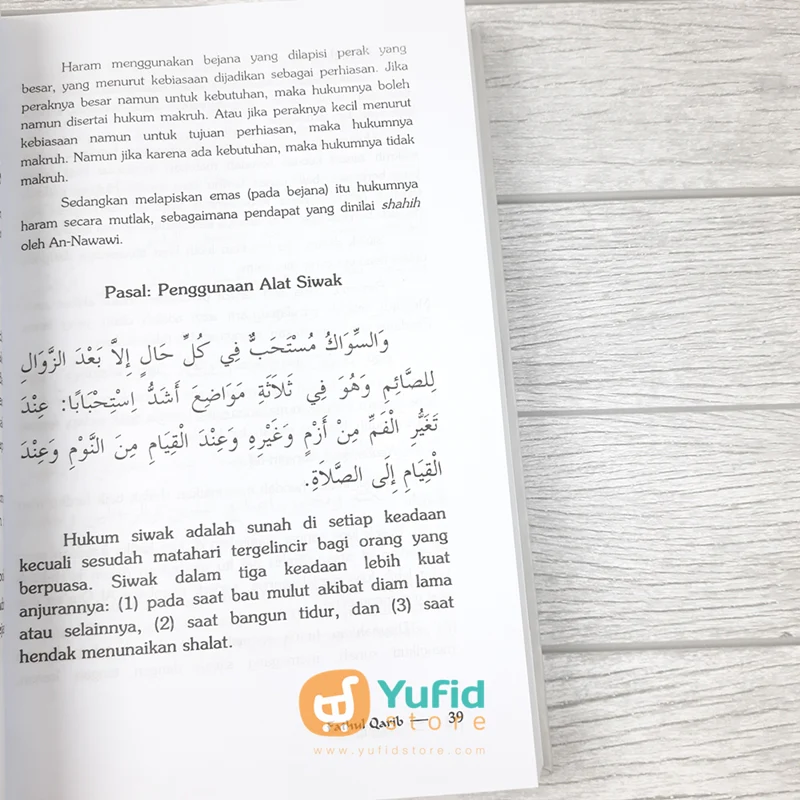 Haram menggunakan bejana yang dilapisi perak yang
besar, yang menurut kebiasaan dijadikan sebagai perhiasan. Jika
peraknya besar namun untuk kebutuhan, maka hukumnya boleh
namun disertai hukum makruh. Atau jika peraknya kecil menurut
kebiasaan namun untuk tujuan perhiasan, maka hukumnya
makruh. Namun jika karena ada kebutuhan, maka hukumnya tidak
makruh.
Sedangkan melapiskan emas (pada bejana) itu hukumnya
haram secara mutlak, sebagaimana pendapat yang dinilai shahih
oleh An-Nawawi.
Pasal: Penggunaan Alat Siwak
وَالسِّوَاكُ مُسْتَحَبٌّ فِي كُلِّ حَالٍ إِلاَّ بَعْدَ الزَّوَالِ
لِلصَّائِمِ وَهُوَ فِي ثَلاَثَةِ مَوَاضِعَ أَشَدُّ اِسْتِحْبَابًا: عِنْدَ
تَغَيُّرِ الْفَمِّ مِنْ أَزْمٍ وَغَيْرِهِ وَعِنْدَ الْقِيَامِ مِنَ النَّوْمِ وَعِنْدَ
الْقِيَامِ إِلَى الصَّلاَةِ.
Hukum siwak adalah sunah di setiap keadaan
kecuali sesudah matahari tergelincir bagi orang yang
berpuasa. Siwak dalam tiga keadaan lebih kuat
anjurannya: (1) pada saat bau mulut akibat diam lama
atau selainnya, (2) saat bangun tidur, dan (3) saat
hendak menunaikan shalat.
Yufid
store
Fathul Qarib — 39
www.yufidstore.com